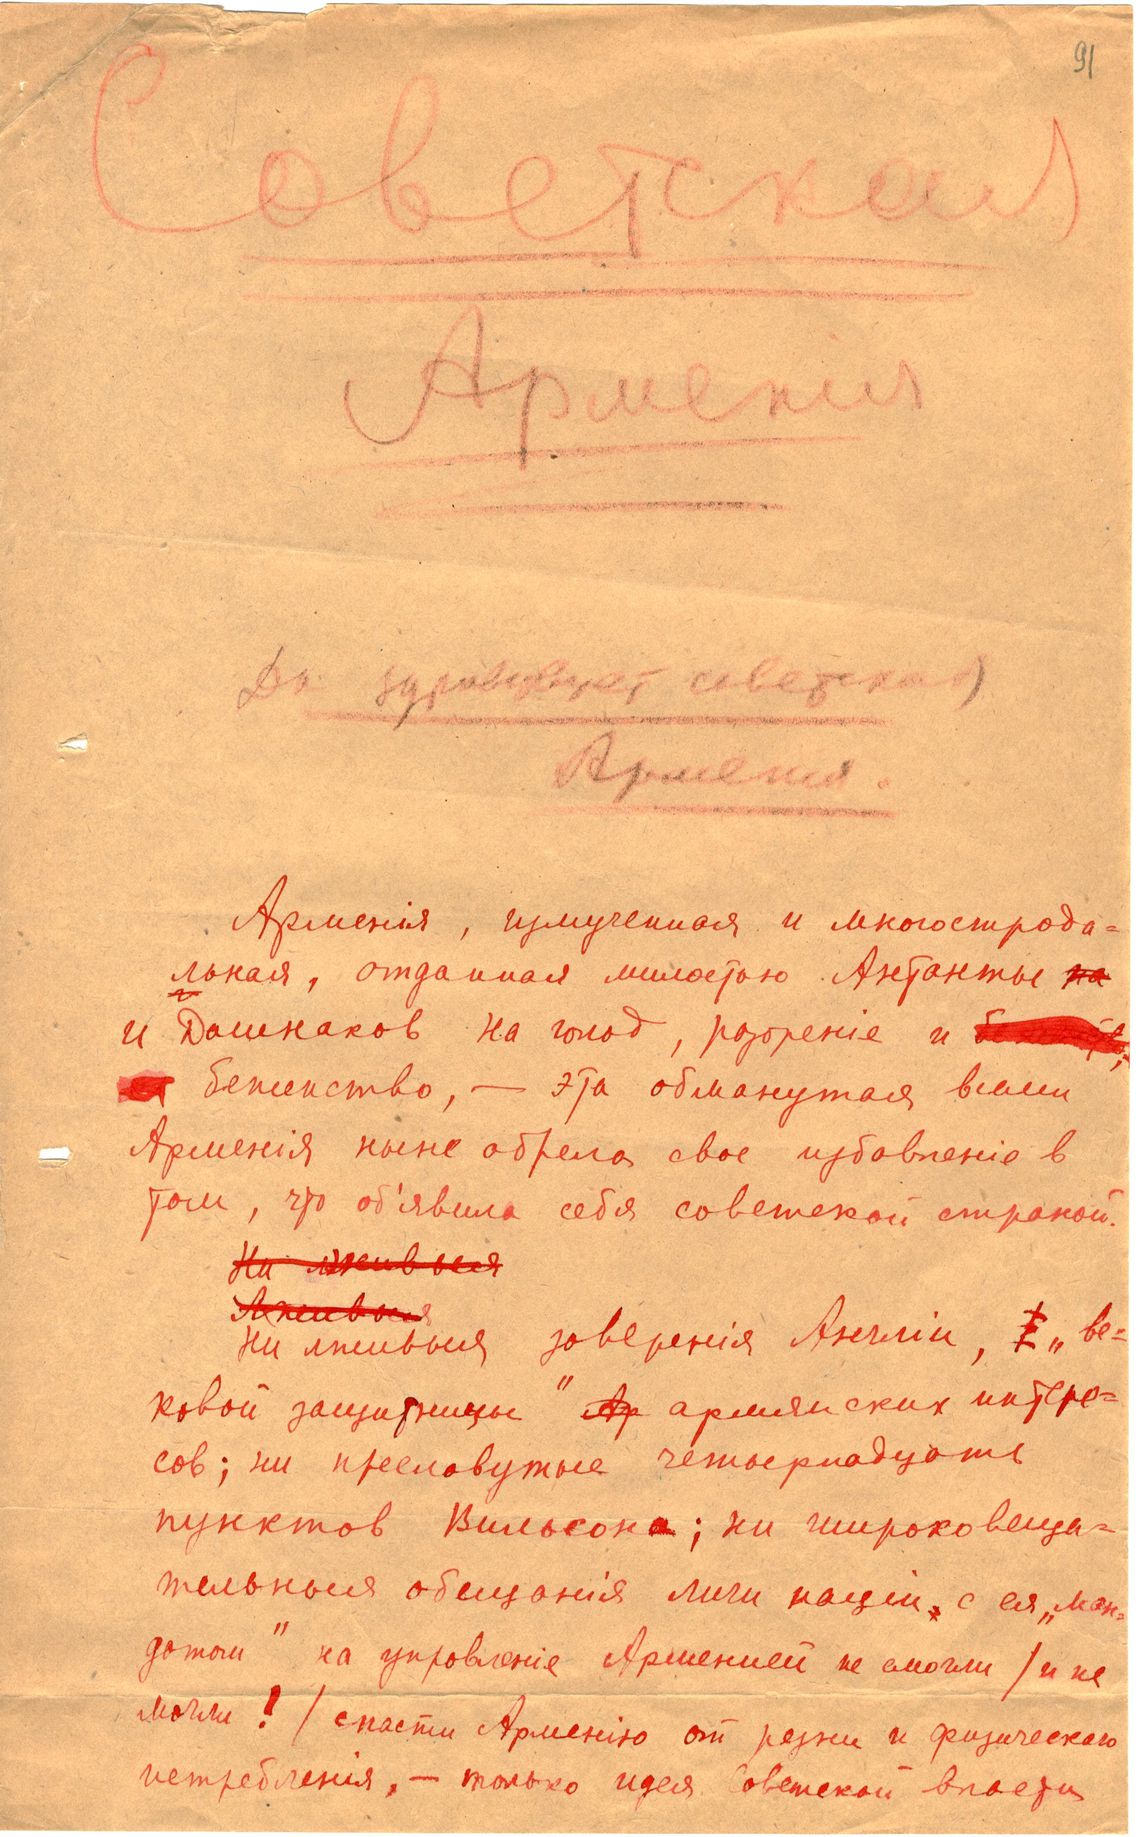 91
Советская
Арменія
Да здравствует советская
Армения.
Арменія, измученная и многострода-
льная, отданная милостью Антанты на
и Дашнаков на голод, разореніе и
беженство, — эта обманутая всеми
Арменія ныне обрела свое избавленіе в
том, что об'явила себя советской страной.
Ни лживыя
Лживыя
Ни лживыя заверенія Англіи, „ве-
ковой защитницы" Ар армянских интере-
сов; ни пресловутые четырнадцать
пунктов Вильсона; ни широковеща-
тельныя обещанія лиги націи, с ея „ман-
датом" на управленіе Арменией не смогли / и не
могли! / спасти Арменію от резни и физическаго
истребленія, — только идея Советской власти